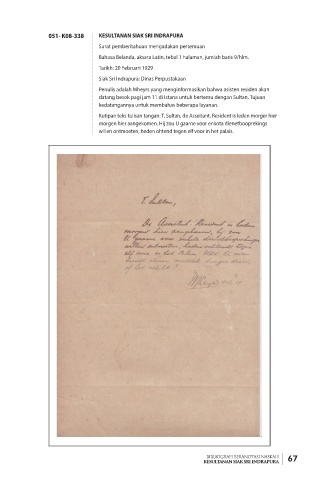 051- K08-338
KESULTANAN SIAK SRI INDRAPURA
Surat pemberitahuan mengadakan pertemuan
Bahasa Belanda, aksara Latin, tebal 1 halaman, jumlah baris 9/hlm.
Tarikh: 20 Februari 1929
Siak Sri Indrapura: Dinas Perpustakaan
Penulis adalah Mheyrs yang menginformasikan bahwa asisten residen akan
datang besok pagi jam 11 di istana untuk bertemu dengan Sultan. Tujuan
kedatangannya untuk membahas beberapa layanan.
Kutipan teks tulisan tangan: T, Sultan, de Assistant, Resident is leden morger hier
morgen hier aangekomen. Hij zou U gaarne voor enkota dienstbooprekings
willen ontmoeten, heden ohtend tegen elf voor in het palais.
T. Sultan,
De Assistent Resident is heden
morgen hier aangekomen, hij zou
U gaarne voor enkele dienstbesprekingen
willen ontmoeten, heden ochtend tegen
elf uur in het Palais.
of het
BIBLIOGRAFI BERANOTASI NASKAH
KESULTANAN SIAK SRI INDRAPURA
67